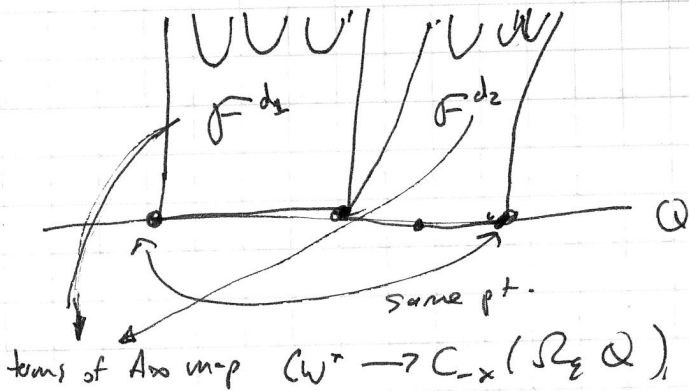 F^{d_1} F^{d_2}
Q
same pt.
terms of A∞ map CW^* → C_{-*}(Ω_q Q),